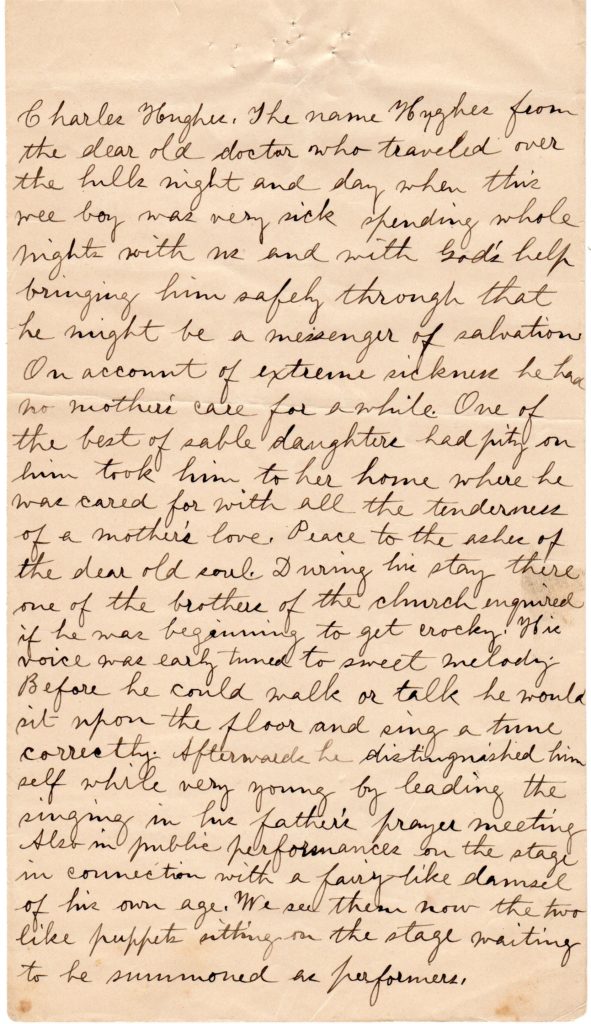 Charles Hughes. The name Hughes from
the dear old doctor who traveled over
the hills night and day when this
wee boy was very sick spending whole
nights with us and with God's help
bringing him safely through that
he might be a messenger of salvation
On account of extreme sickness he had
no mother's care for a while. One of
the best of sable daughters had pity on
him took him to her home where he
was cared for with all the tenderness
of a mother's love. Peace to the ashes of
the dear old soul. During his stay there
one of the brothers of the church enquired
if he was beginning to get crocky. His
voice was early tuned to sweet melody.
Before he could walk or talk he would
sit upon the floor and sing a tune
correctly. Afterwards he distinguished him
self while very young by leading the
singing in his father's prayer meeting
Also in public performances on the stage
in connection with a fairy-like damsel
of his own age. We see them now the two
like puppets sitting on the stage waiting
to be summoned as performers.